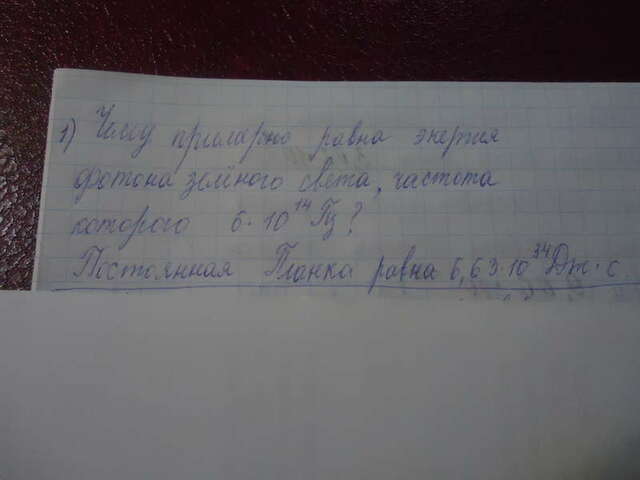 1) Чему примерно равна энергия
фотона зелёного света, частота
которого 6·10¹⁴ Гц?
Постоянная Планка равна 6,63·10³⁴ Дж·с.